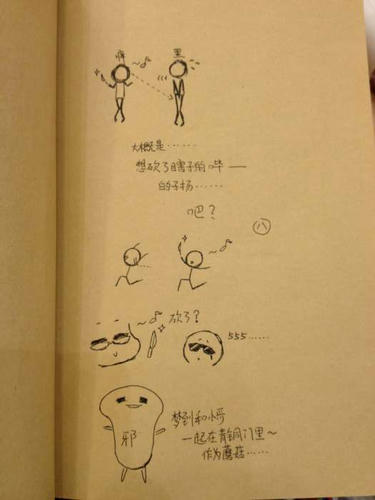 痒 黑
大概是……
想砍了瞎子的哔——
的子扬……
吧？
八
砍了？
555……
邪
梦到和小哥
一起在青铜门里~
作为蘑菇……